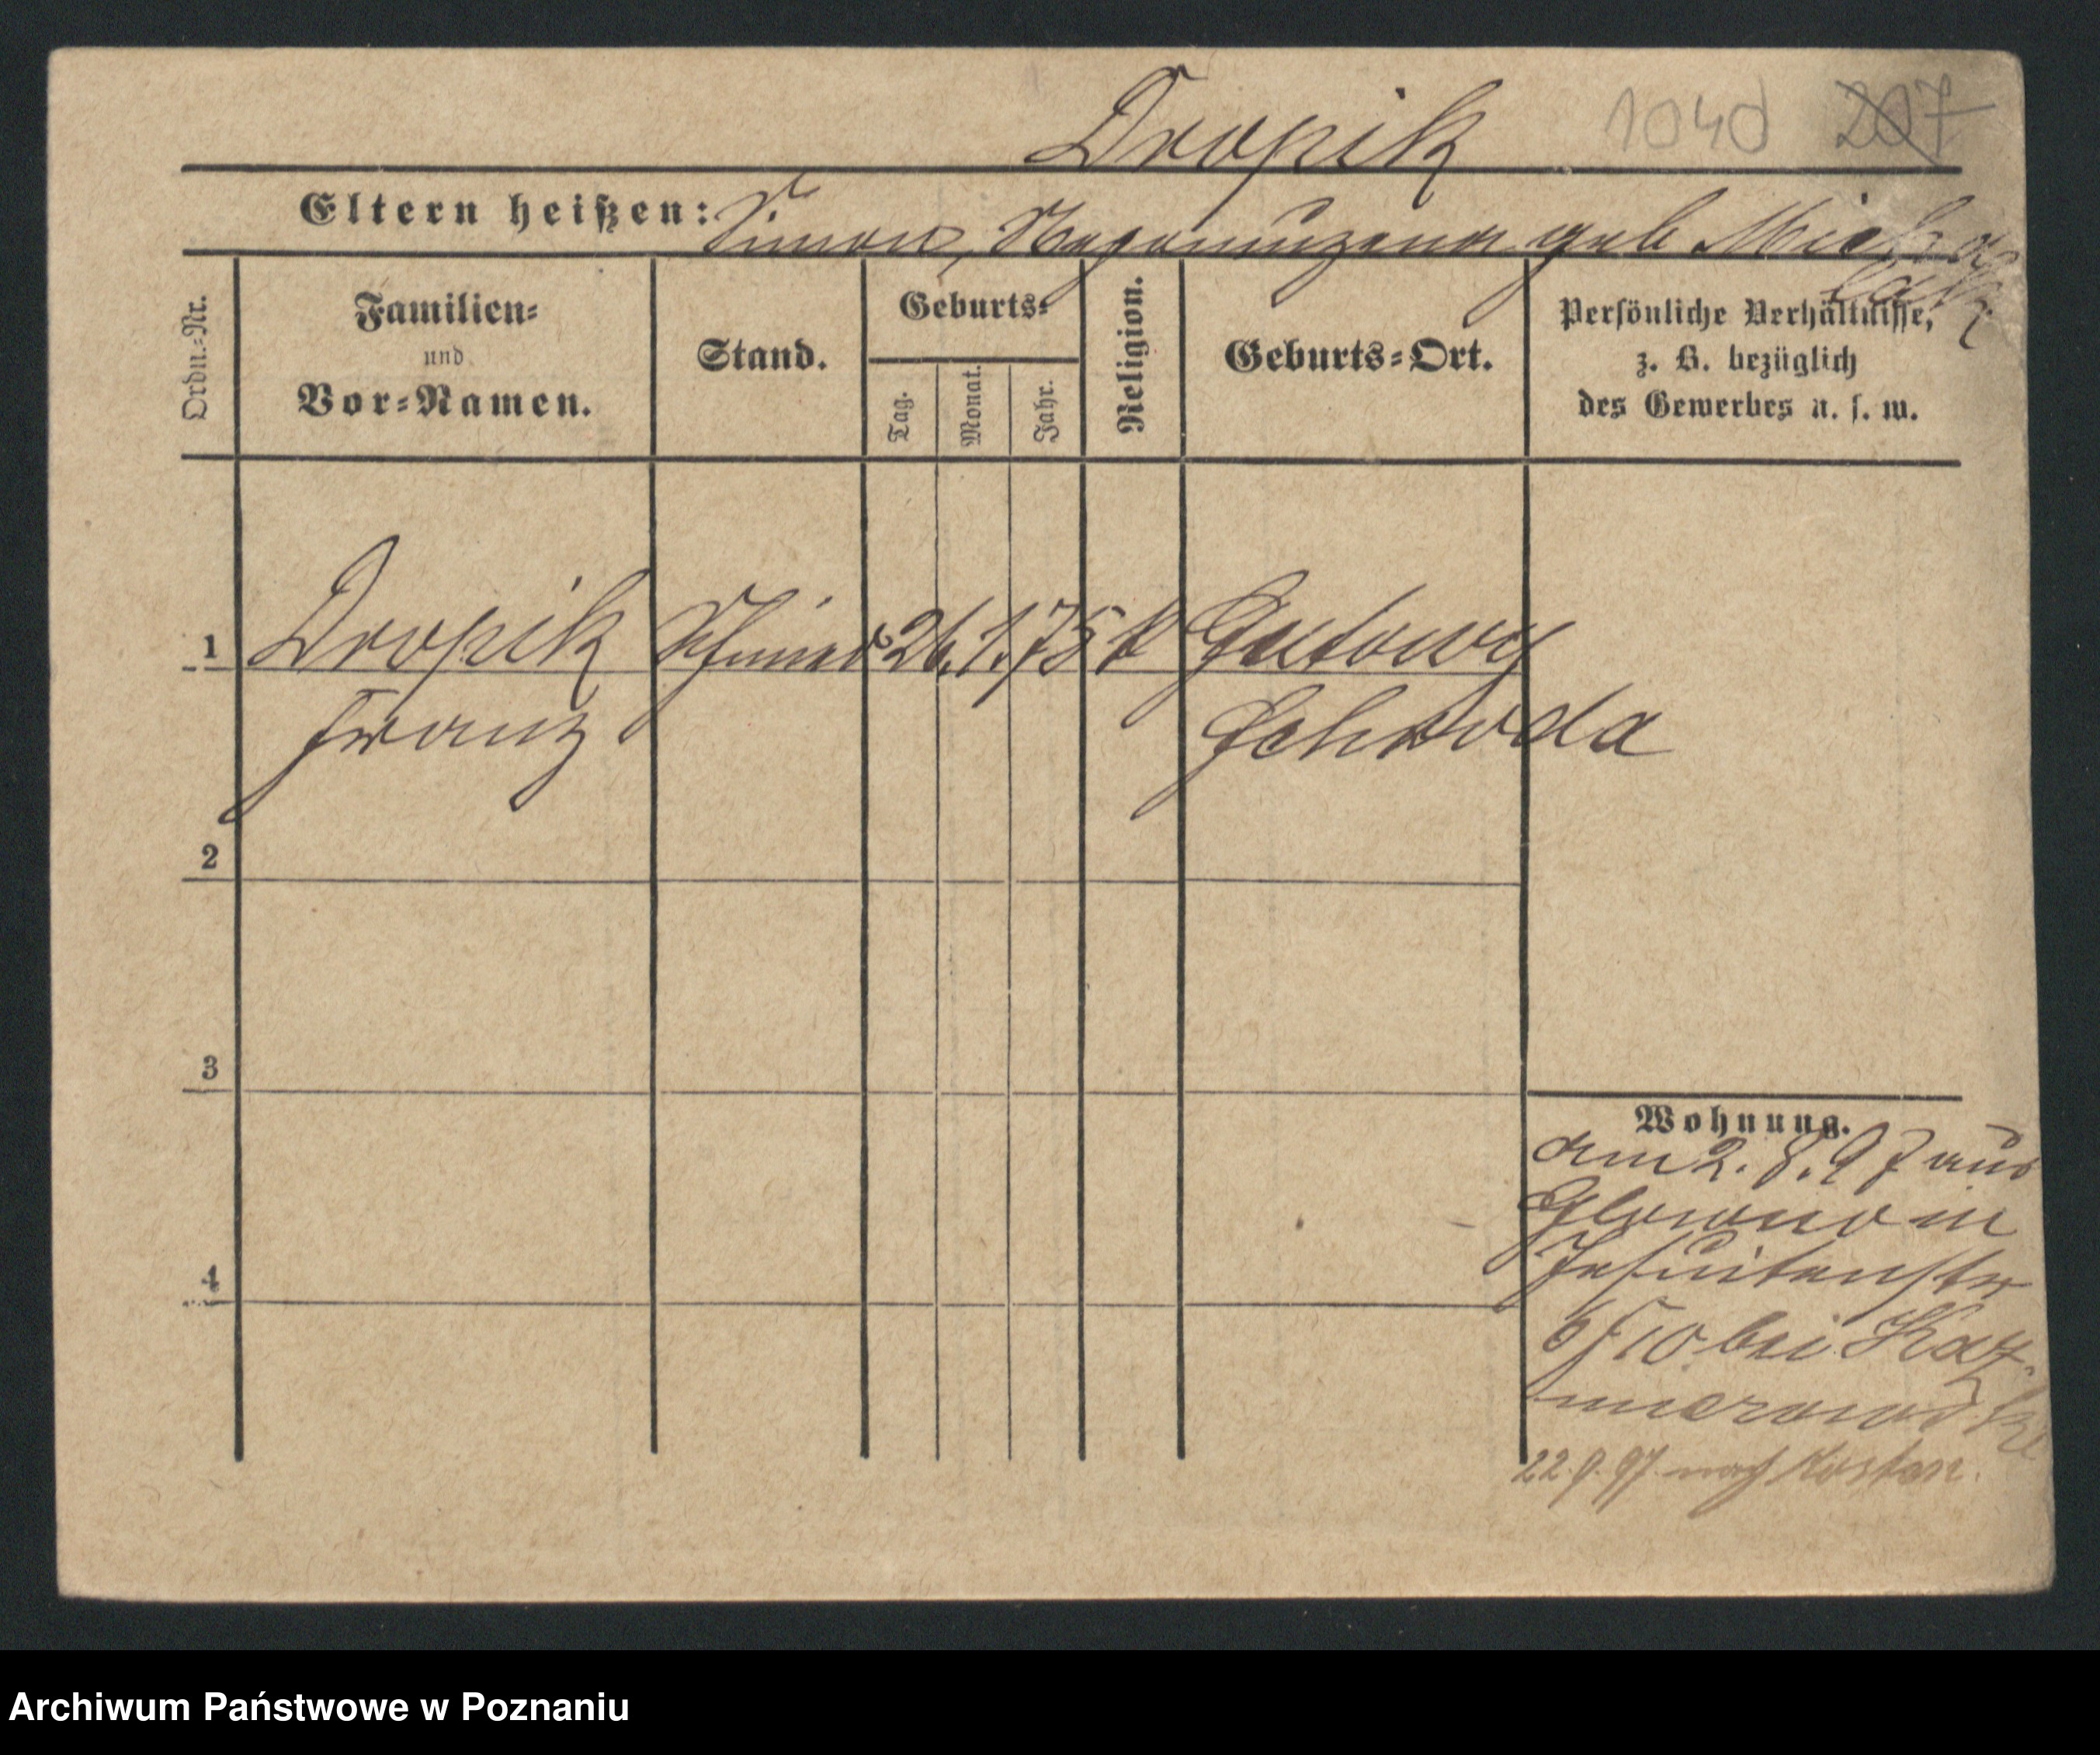 Dropik 1040 207
Eltern heißen: Simon, Nepomuzena geb Micha
lak
Ordn.-Nr.
Familien-
und
Vor-Namen.
Stand.
Geburts-
Tag.
Monat.
Jahr.
Religion.
Geburts-Ort.
Persönliche Verhältnisse,
z. B. bezüglich
des Gewerbes u. s. w.
1 Dropik Schmied 26. 1. 75 k Gutowy
Franz Schroda
2
3
4
Wohnung.
am 2. 8. 97 aus
Glowno in
Jesuitenstr
10 bei Kaz-
mierowski
22.9.97 nach Kosten.
Archiwum Państwowe w Poznaniu